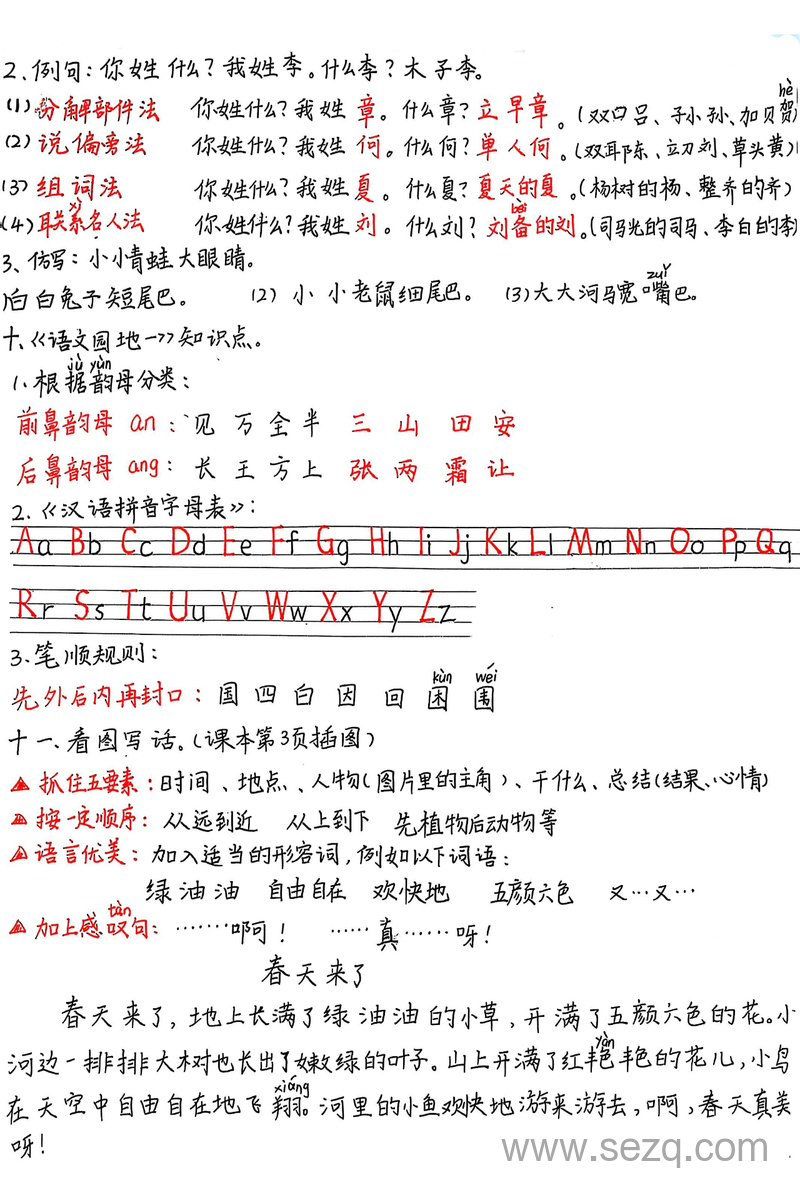 2、例句:你姓什么?我姓李。什么李?木子李。
(1)分解部件法 你姓什么?我姓章。什么章?立早章。(双口吕、子小孙、加贝贺hè)
(2)说偏旁法 你姓什么?我姓何。什么何?单人何。(双耳陈、立刀刘、草头黄)
(3)组词法 你姓什么?我姓夏。什么夏?夏天的夏。(杨树的杨、整齐的齐)
(4)联系xì名人法 你姓什么?我姓刘。什么刘?刘备bèi的刘。(司马光的司马、李白的李)
3、仿写:小小青蛙大眼睛。
(1)白白兔子短尾巴。 (2)小小老鼠细尾巴。 (3)大大河马宽嘴zuǐ巴。
十、《语文园地一》知识点。
1.根据jù韵yùn母分类:
前鼻韵母an:见 万 全 半 三 山 田 安
后鼻韵母ang:长 王 方 上 张 两 霜 让
2.《汉语拼音字母表》:
Aa Bb Cc Dd Ee Ff Gg Hh Ii Jj Kk Ll Mm Nn Oo Pp Qq
Rr Ss Tt Uu Vv Ww Xx Yy Zz
3.笔顺规则:
先外后内再封口:国 四 白 因 回 困kùn 围wéi
十一、看图写话。(课本第3页插图)
抓住五要素:时间、地点、人物(图片里的主角)、干什么、总结(结果、心情)
按一定顺序:从远到近 从上到下 先植物后动物等
语言优美:加入适当的形容词,例如以下词语:
绿油油 自由自在 欢快地 五颜六色 又…又…
加上感叹tàn句:……啊! ……真……呀!
春天来了
春天来了,地上长满了绿油油的小草,开满了五颜六色的花。小
河边一排排大树也长出了嫩绿的叶子。山上开满了红艳yàn艳的花儿,小鸟
在天空中自由自在地飞翔xiáng。河里的小鱼欢快地游来游去,啊,春天真美
呀!
www.sezq.com